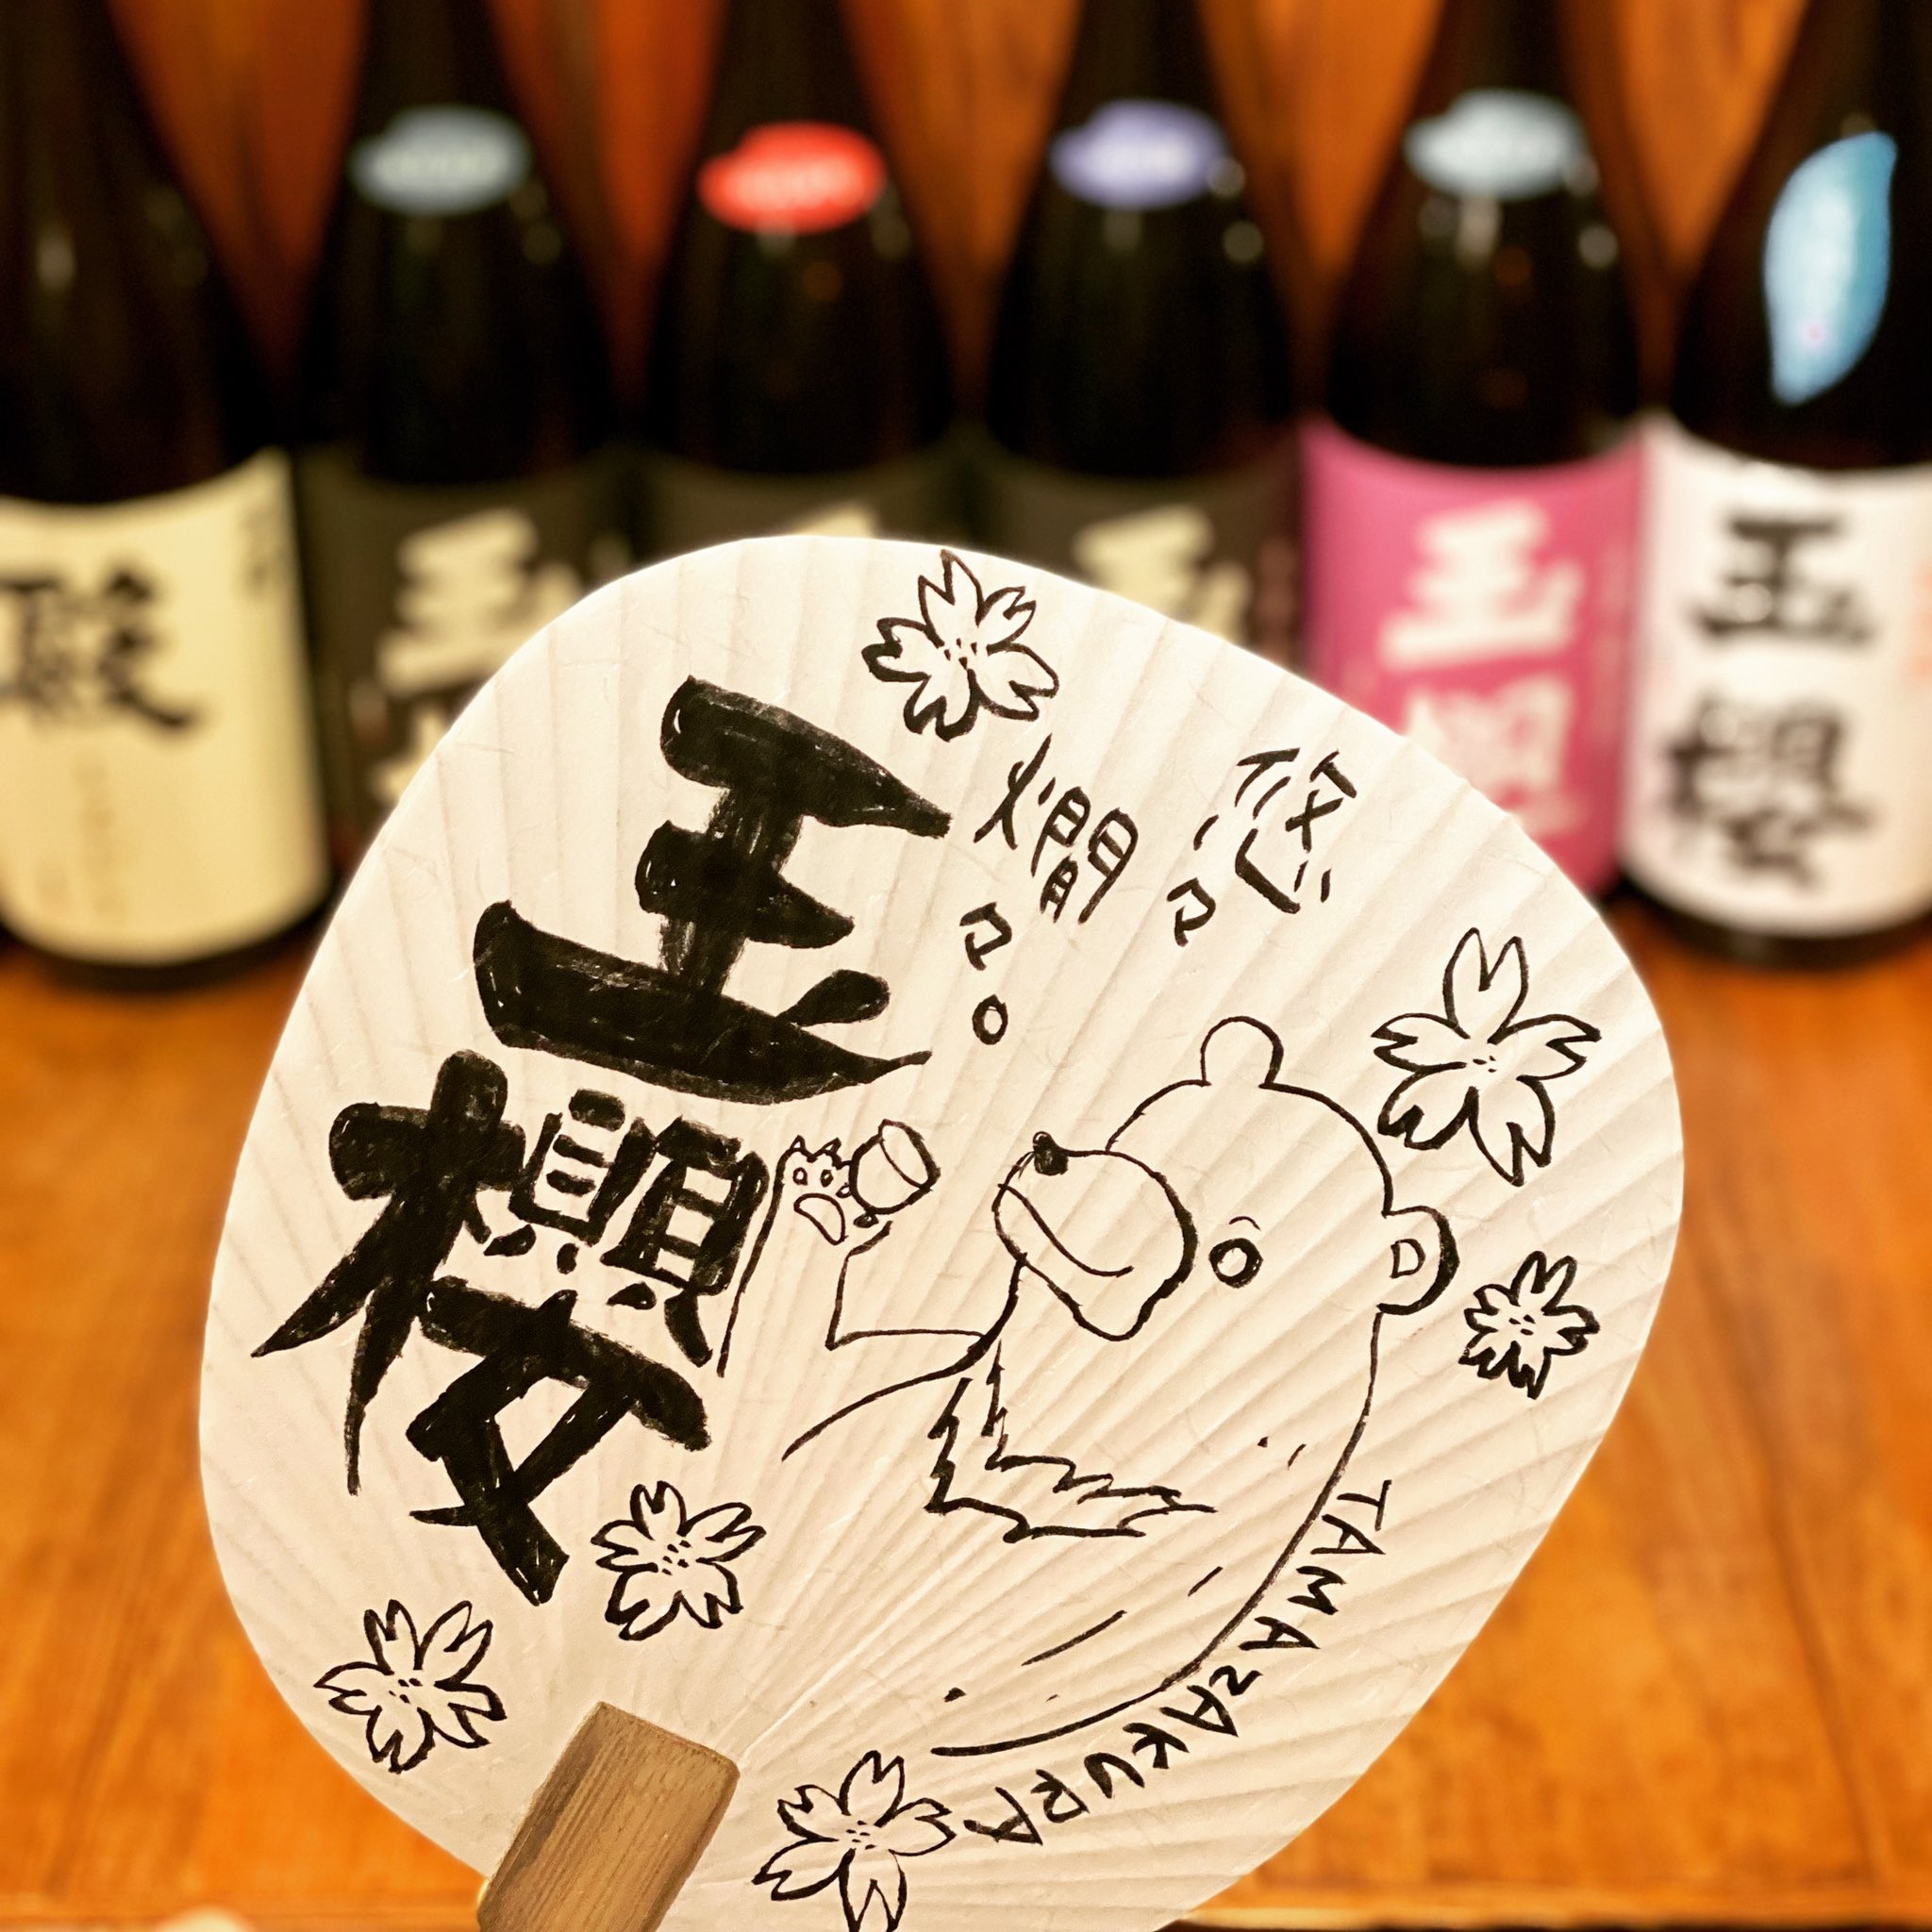 悠々
燗々。
玉櫻
TAMAZAKURA
玉櫻
玉櫻
玉
殿